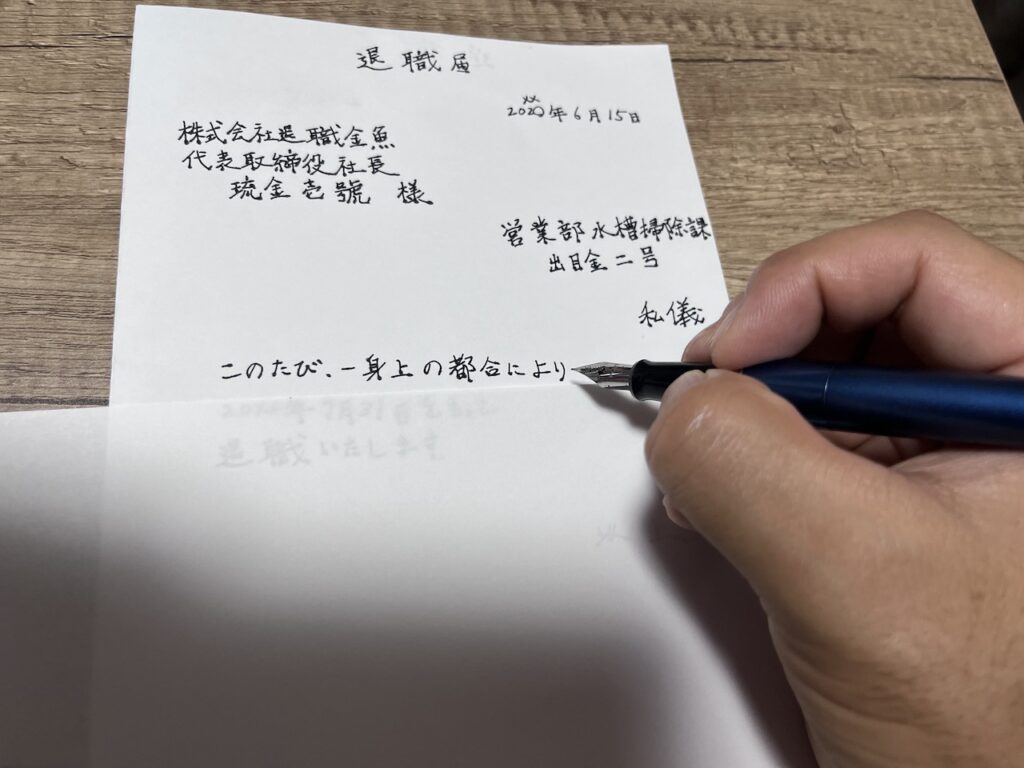 退職届
××
2020年6月15日
株式会社退職金魚
代表取締役社長
琉金壱號 様
営業部水槽掃除課
出目金二号
私儀
このたび、一身上の都合により
年7月31日をもって
退職いたします